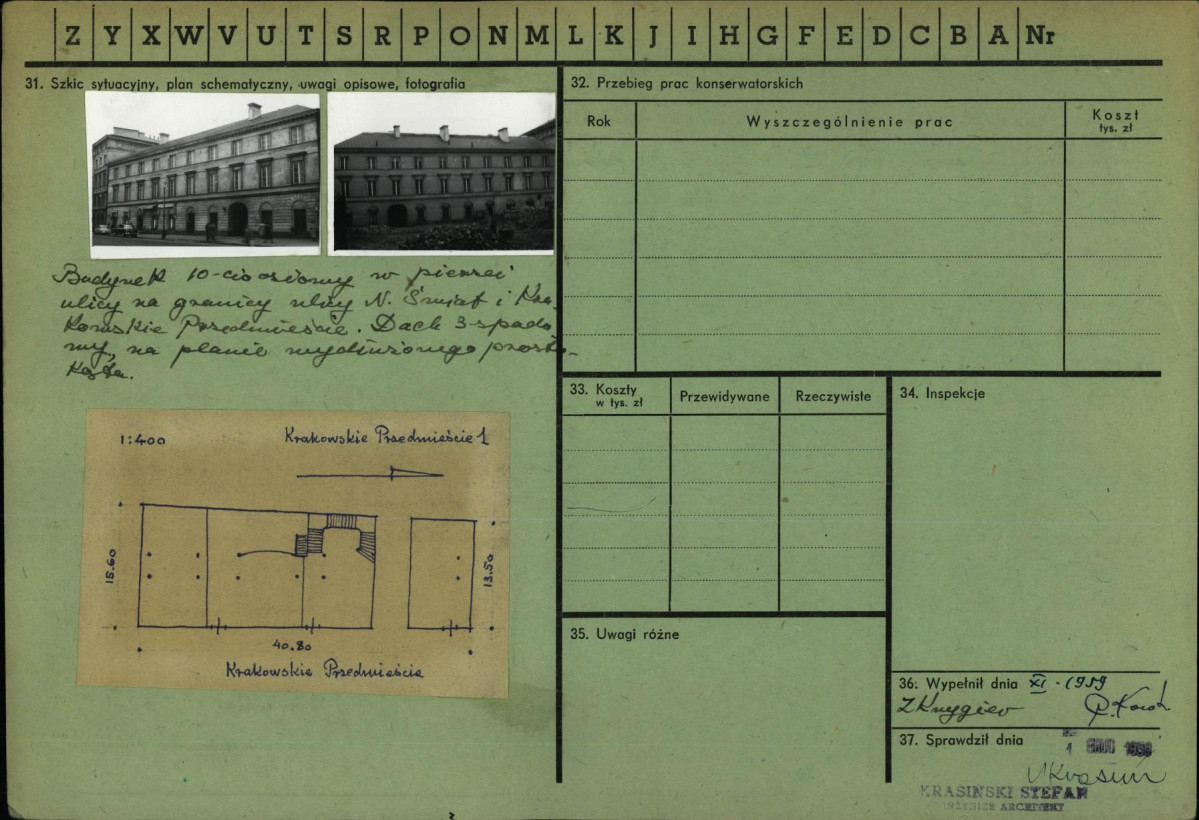 Z Y X W V U T S R P O N M L K J I H G F E D C B A Nr
31. Szkic sytuacyjny, plan schematyczny, uwagi opisowe, fotografia
Budynek 10-cio osiowy w pierzei
ulicy na granicy ulicy N. Świat i Kra-
kowskie Przedmieście. Dach 3-spado-
wy, na planie wydłużonego prosto-
kąta.
1:400
Krakowskie Przedmieście 1
15.60
13.50
40.80
Krakowskie Przedmieście
32. Przebieg prac konserwatorskich
Rok
Wyszczególnienie prac
Koszt
tys. zł
33. Koszty
w tys. zł
Przewidywane
Rzeczywiste
34. Inspekcje
35. Uwagi różne
36. Wypełnił dnia XI - 1959
37. Sprawdził dnia
1 GRUD 1959
KRASIŃSKI STEFAN
INŻYNIER ARCHITEKT